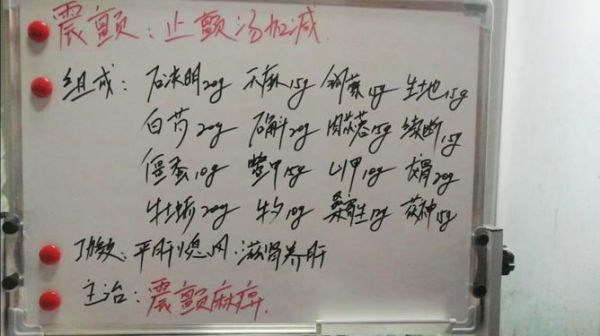 震颤：止颤汤加减
组成：石决明20g 天麻15g 钩藤15g 生地15g
白芍20g 石斛20g 肉苁蓉15g 续断15g
僵蚕10g 鳖甲15g 山甲10g 龙骨20g
牡蛎20g 牛夕10g 桑寄生12g 茯神15g
功效：平肝熄风：滋肾养肝
主治：震颤麻痹